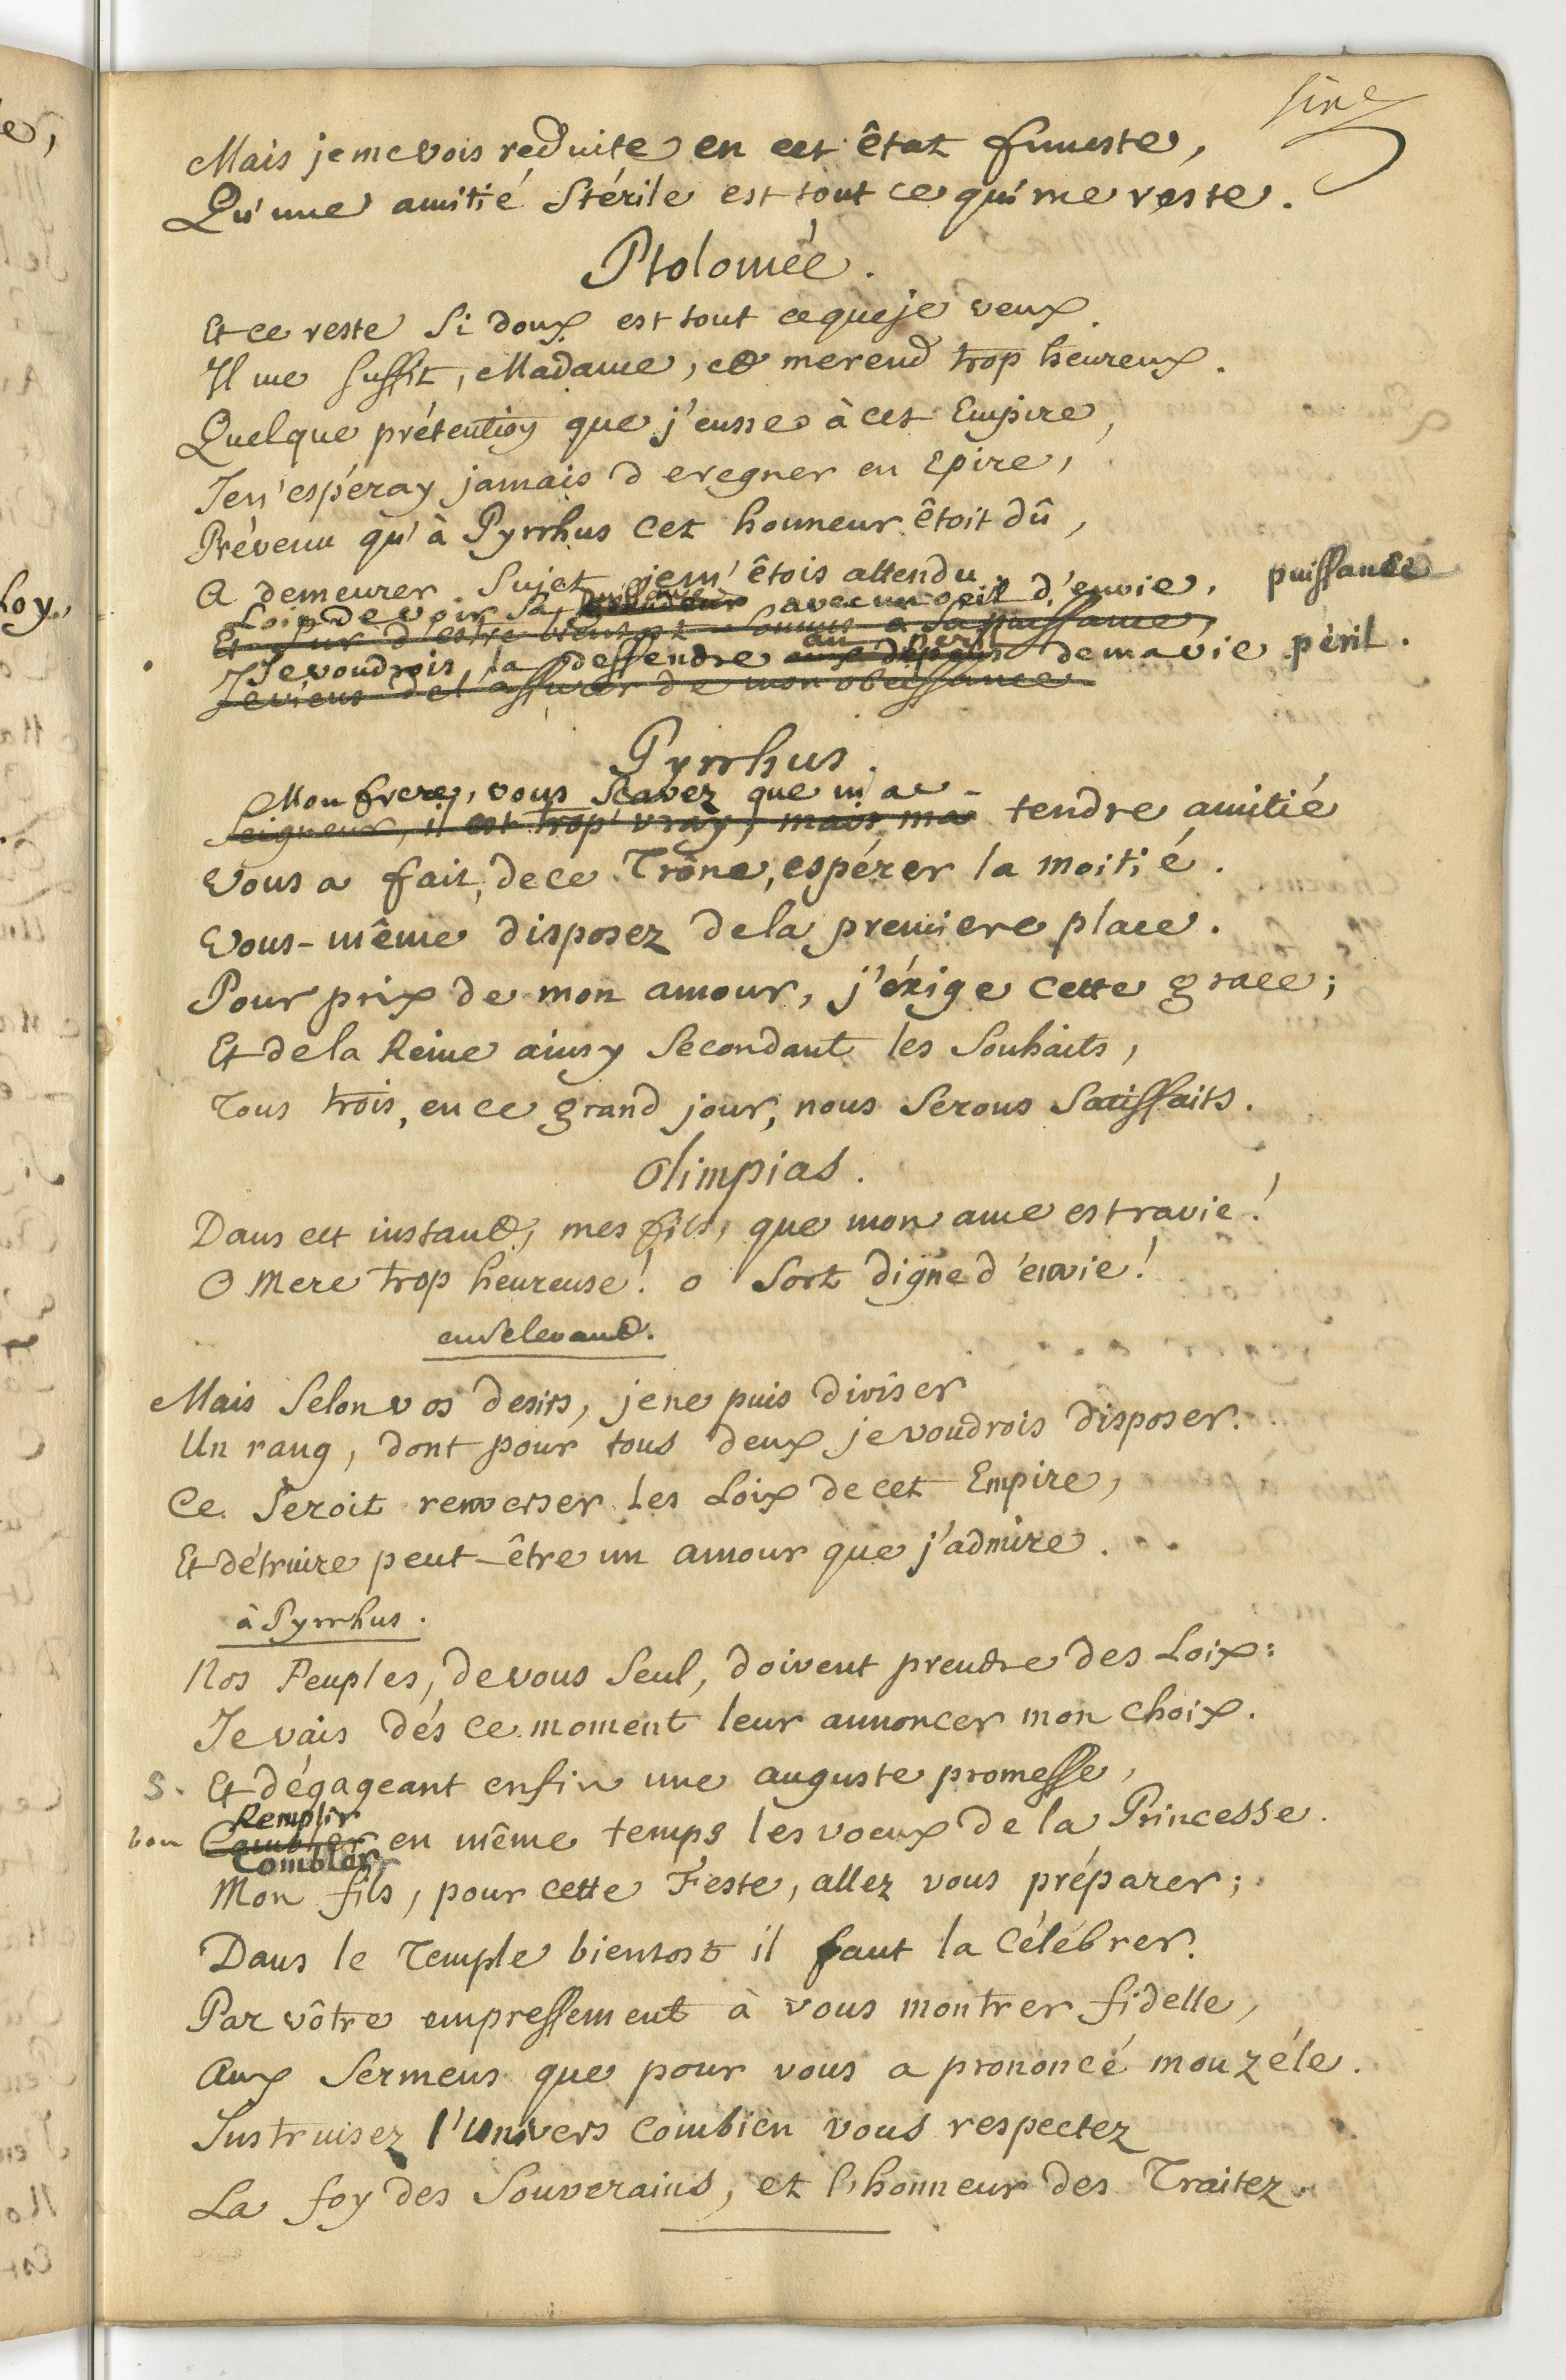 sire
Mais je me vois reduite en cet êtat funeste,
Qu'une amitié Stérile est tout ce qui me reste.
Ptolomée.
Et ce reste Si doux est tout ce que je veux.
Il me Suffit, Madame, et me rend trop heureux.
Quelque prétention que j'eusse à cet Empire,
Je n'espéray jamais de regner en Epire,
Prévenu qu'à Pyrrhus cet honneur êtoit dû,
A demeurer Sujet je m'êtois attendu.
puissance
Loin de voir Sa grandeur avec un oeil d'envie, puissance
Et Sur d'estre bientost Soumis a Sa puissance,
au peril
Je voudrois la deffendre aux dépens de ma vie péril.
Je viens de l'assurer de mon obeissance
Pyrrhus.
Mon frere, vous Scavez que ma
Seigneur, il est trop vray, mais ma tendre amitié
Vous a fait, de ce Trône, espérer la moitié.
Vous-même disposez de la premiere place.
Pour prix de mon amour, j'éxige cette grace;
Et de la Reine ainsy Secondant les Souhaits,
Tous trois, en ce grand jour, nous Serons Satisfaits.
Olimpias.
Dans cet instant, mes fils, que mon ame est ravie!
O Mere trop heureuse! o Sort digne d'envie!
en Se levant.
Mais Selon vos desirs, je ne puis diviser
Un rang, dont pour tous deux je voudrois disposer.
Ce Seroit renverser les Loix de cet Empire,
Et détruire peut-être un amour que j'admire.
à Pyrrhus.
Nos Peuples, de vous Seul, doivent prendre des Loix:
Je vais dés ce moment leur annoncer mon choix.
S. Et dégageant enfin une auguste promesse,
Remplir
bon Combler en même temps les voeux de la Princesse.
Combler
Mon fils, pour cette Feste, allez vous préparer;
Dans le Temple bientost il faut la célébrer.
Par vôtre empressement à vous montrer fidelle,
Aux Sermens que pour vous a prononcé mon zéle.
Instruisez l'Univers combien vous respectez
La foy des Souverains, et l'honneur des Traitez.